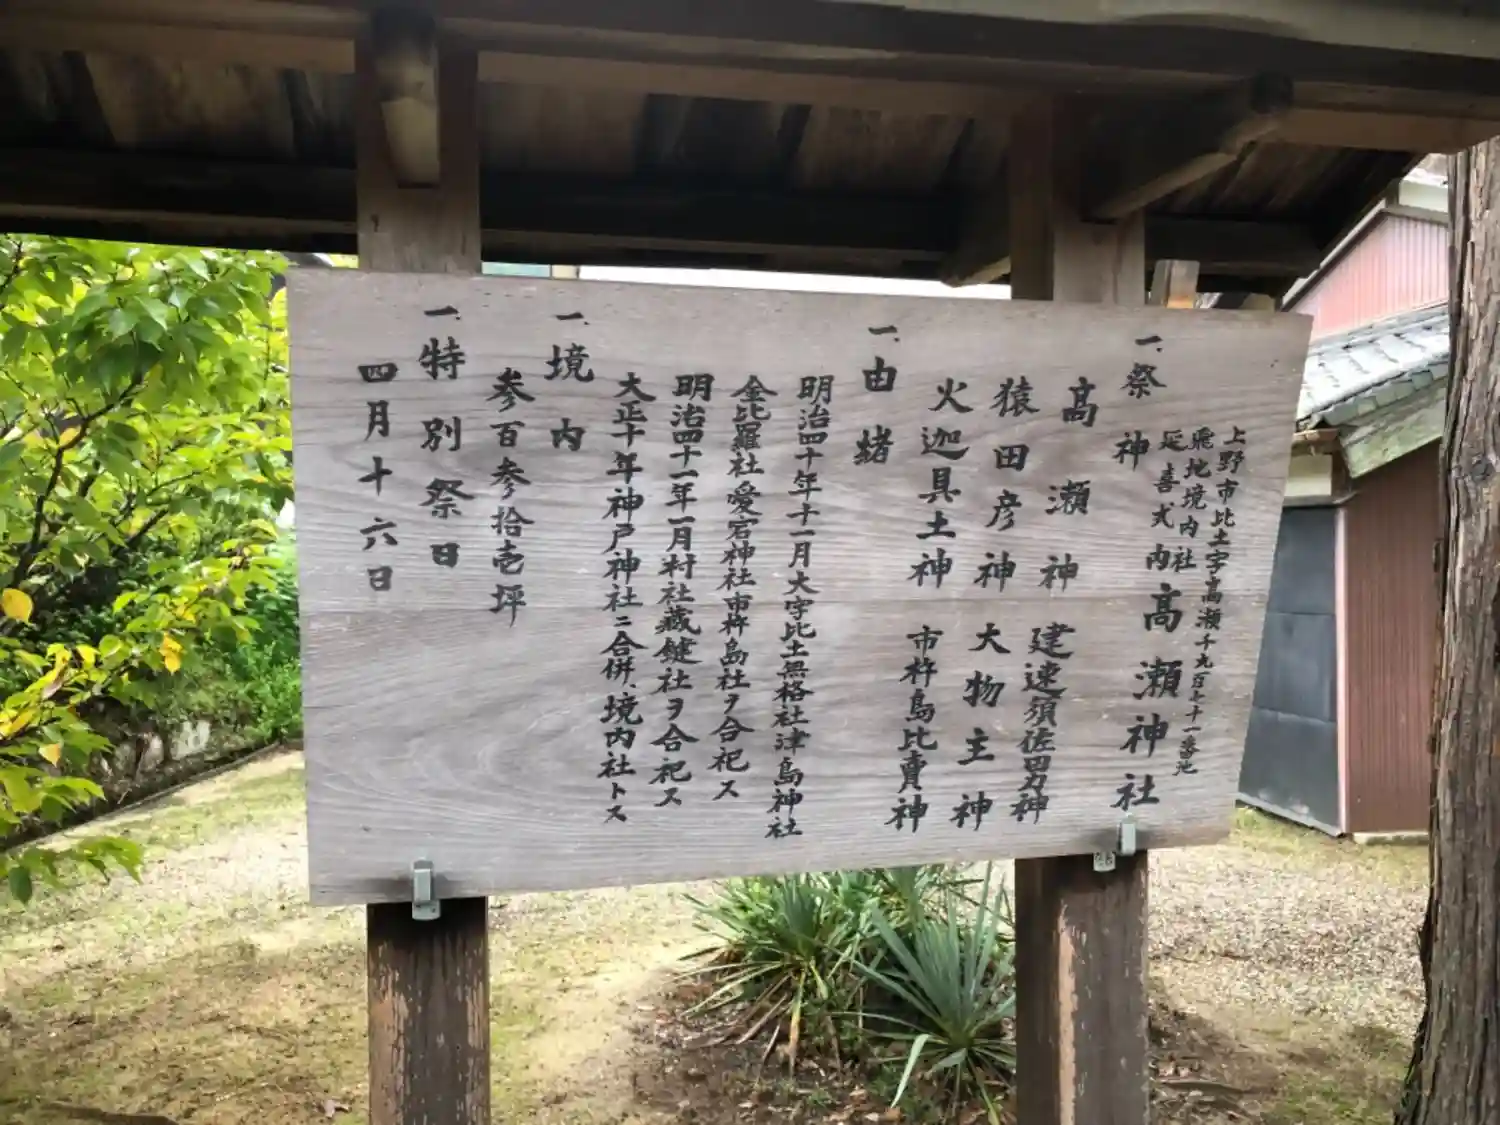 上野市比土字高瀬千九百七十一番地
飛地境内社
延喜式内高瀬神社
一、祭神
高瀬神 建速須佐男神
猿田彦神 大物主神
火迦具土神 市杵島比賣神
一、由緒
明治四十年十一月大字比土無格社津島神社
金比羅社愛宕神社市杵島社ヲ合祀ス
明治四十一年一月村社蔵鍵社ヲ合祀ス
大正十年神戸神社ニ合併、境内社トス
一、境内
参百参拾壱坪
一、特別祭日
四月十六日